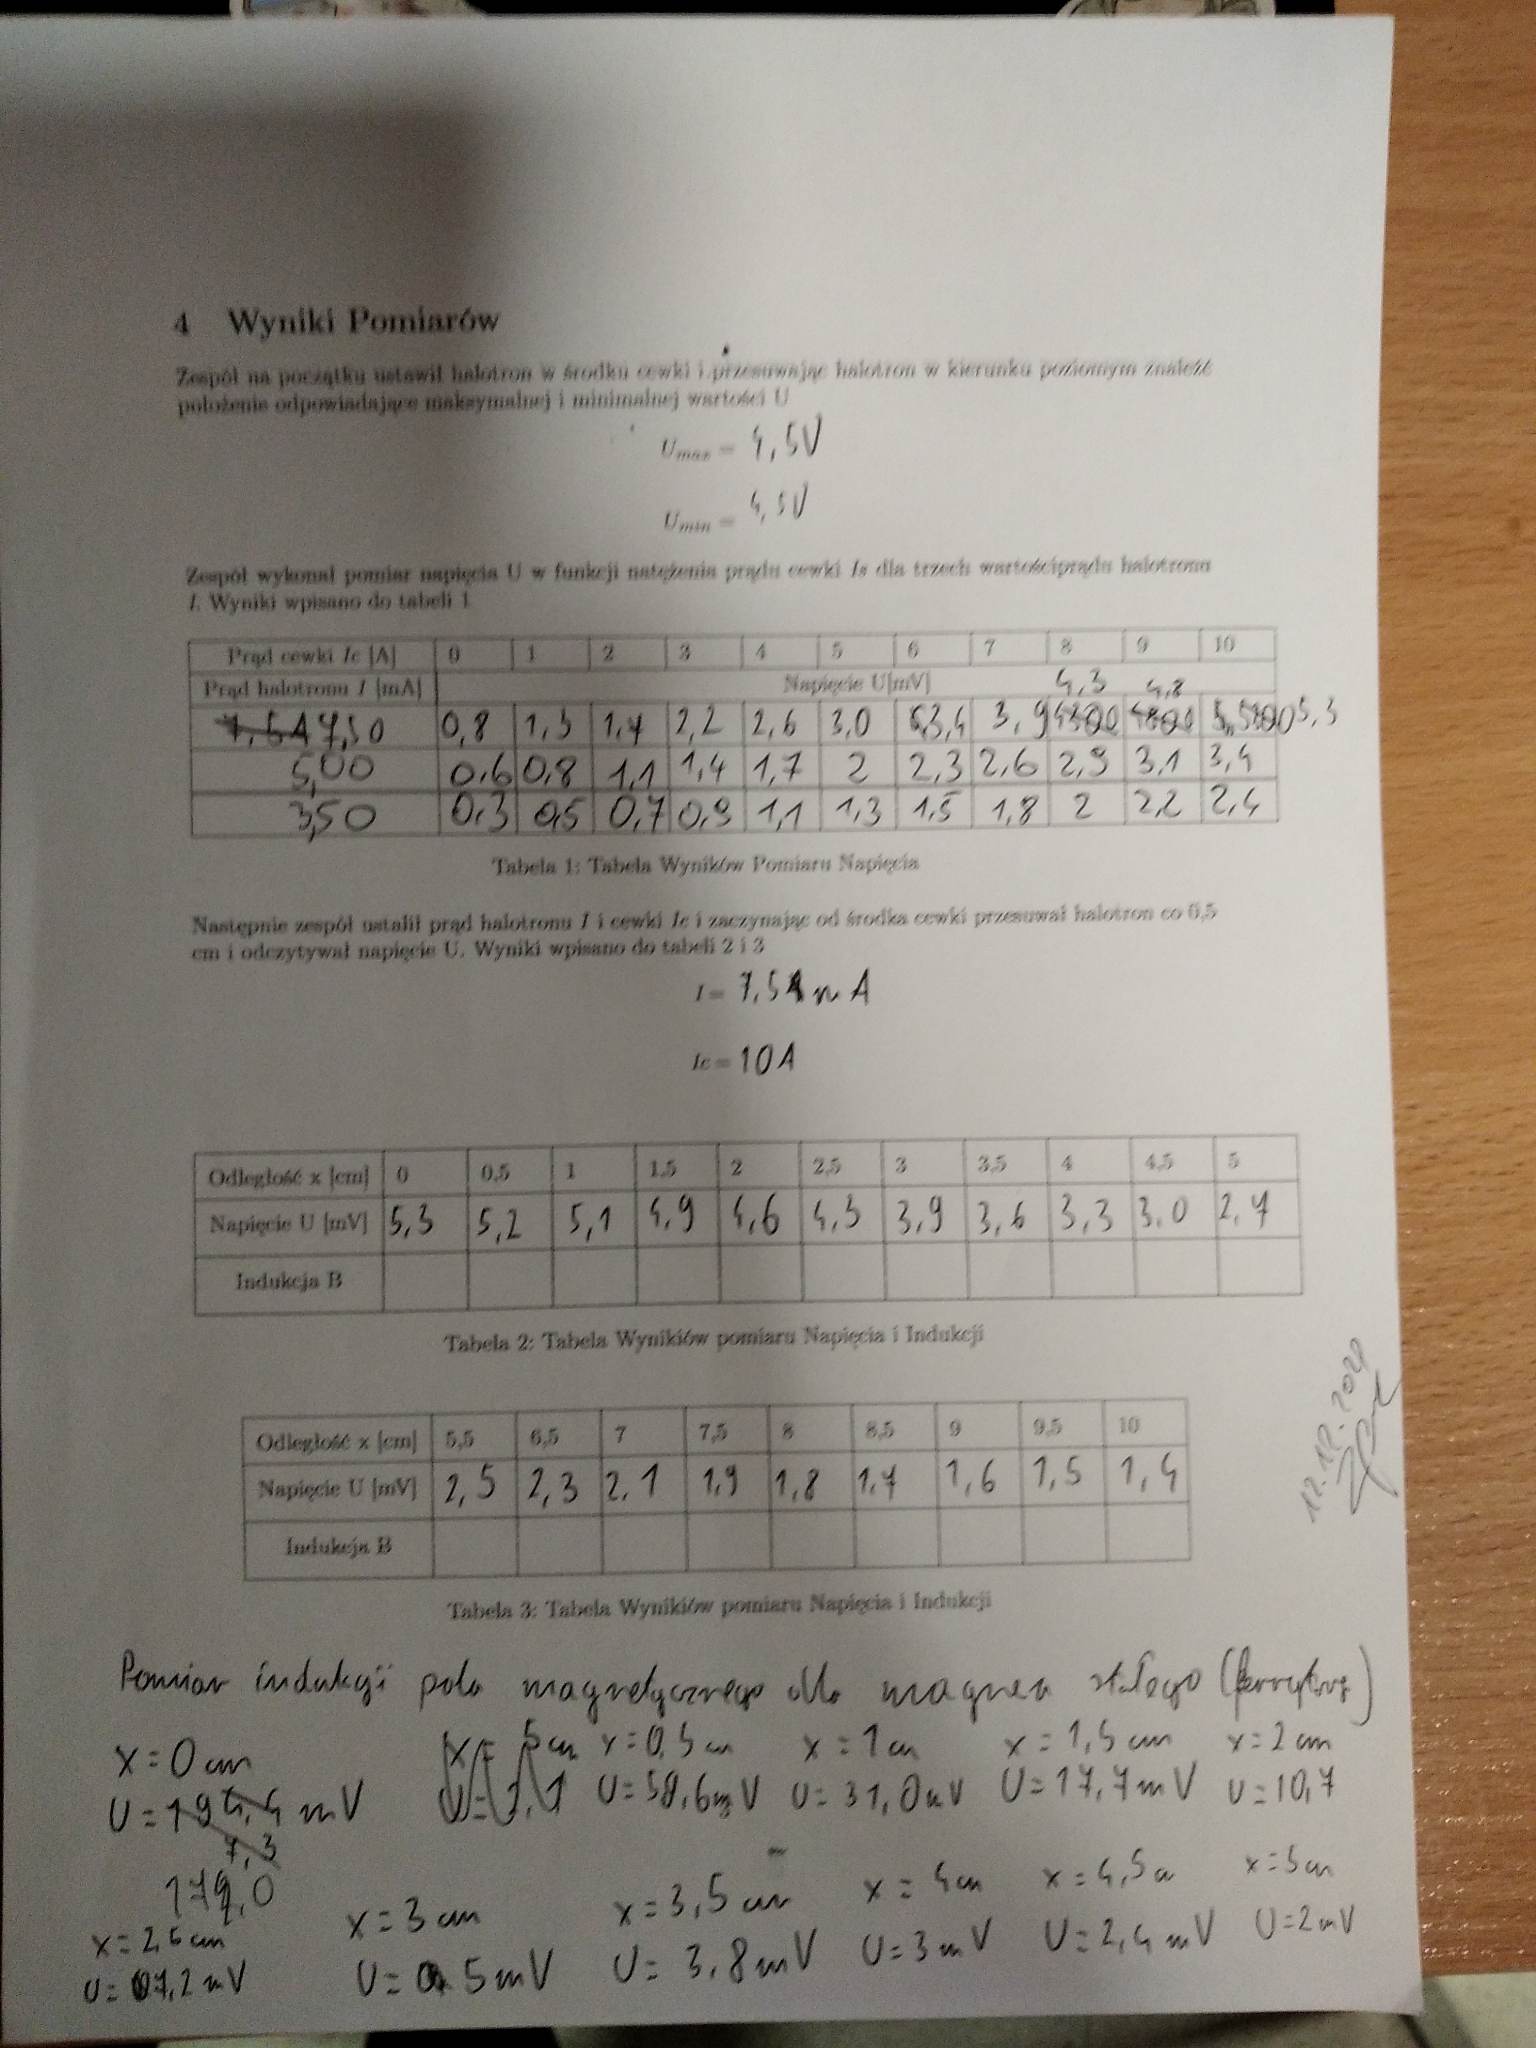 4 Wyniki Pomiarów
Zespół na początku ustawił halotron w środku cewki i przesuwając halotron w kierunku poziomym znaleźć
położenie odpowiadające maksymalnej i minimalnej wartości U
Umax = 4,5V
Umin = 4,5V
Zespół wykonał pomiar napięcia U w funkcji natężenia prądu cewki Is dla trzech wartościprądu halotronu
I. Wyniki wpisano do tabeli 1
Prąd cewki Ic [A] 0 1 2 3 4 5 6 7 8 9 10
Prąd halotronu I [mA] Napięcie U[mV] 4,3 4,8
7,50 0,8 1,3 1,7 2,2 2,6 3,0 3,4 3,9 5,3
5,00 0,6 0,8 1,1 1,4 1,7 2 2,3 2,6 2,9 3,1 3,4
3,50 0,3 0,5 0,7 0,9 1,1 1,3 1,5 1,8 2 2,2 2,4
Tabela 1: Tabela Wyników Pomiaru Napięcia
Następnie zespół ustalił prąd halotronu I i cewki Ic i zaczynając od środka cewki przesuwał halotron co 0,5
cm i odczytywał napięcie U. Wyniki wpisano do tabeli 2 i 3
I = 7,51 mA
Ic = 10A
Odległość x [cm] 0 0,5 1 1,5 2 2,5 3 3,5 4 4,5 5
Napięcie U [mV] 5,3 5,2 5,1 4,9 4,6 4,3 3,9 3,6 3,3 3,0 2,7
Indukcja B
Tabela 2: Tabela Wynikiów pomiaru Napięcia i Indukcji
Odległość x [cm] 5,5 6,5 7 7,5 8 8,5 9 9,5 10
Napięcie U [mV] 2,5 2,3 2,1 1,9 1,8 1,7 1,6 1,5 1,4
Indukcja B
Tabela 3: Tabela Wynikiów pomiaru Napięcia i Indukcji
12.12.
Pomiar indukcji pola magnetycznego dla magnesu stałego
x = 0 cm x = 0,5 cm x = 1 cm x = 1,5 cm x = 2 cm
U = mV U = 58,6 mV U = 31,0 mV U = 17,7 mV U = 10,7
x = 2,5 cm x = 3 cm x = 3,5 cm x = 4 cm x = 4,5 cm x = 5 cm
U = 7,2 mV U = 5 mV U = 3,8 mV U = 3 mV U = 2,4 mV U = 2 mV